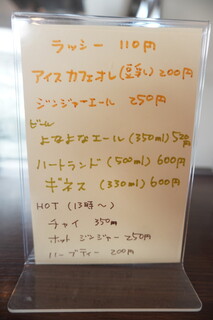 ラッシー 110円
アイスカフェオレ(豆乳) 200円
ジンジャーエール 250円
ビール
よなよなエール(350ml) 520円
ハートランド(500ml) 600円
ギネス(330ml) 600円
HOT (13時〜)
チャイ 350円
ホットジンジャー 250円
ハーブティー 200円